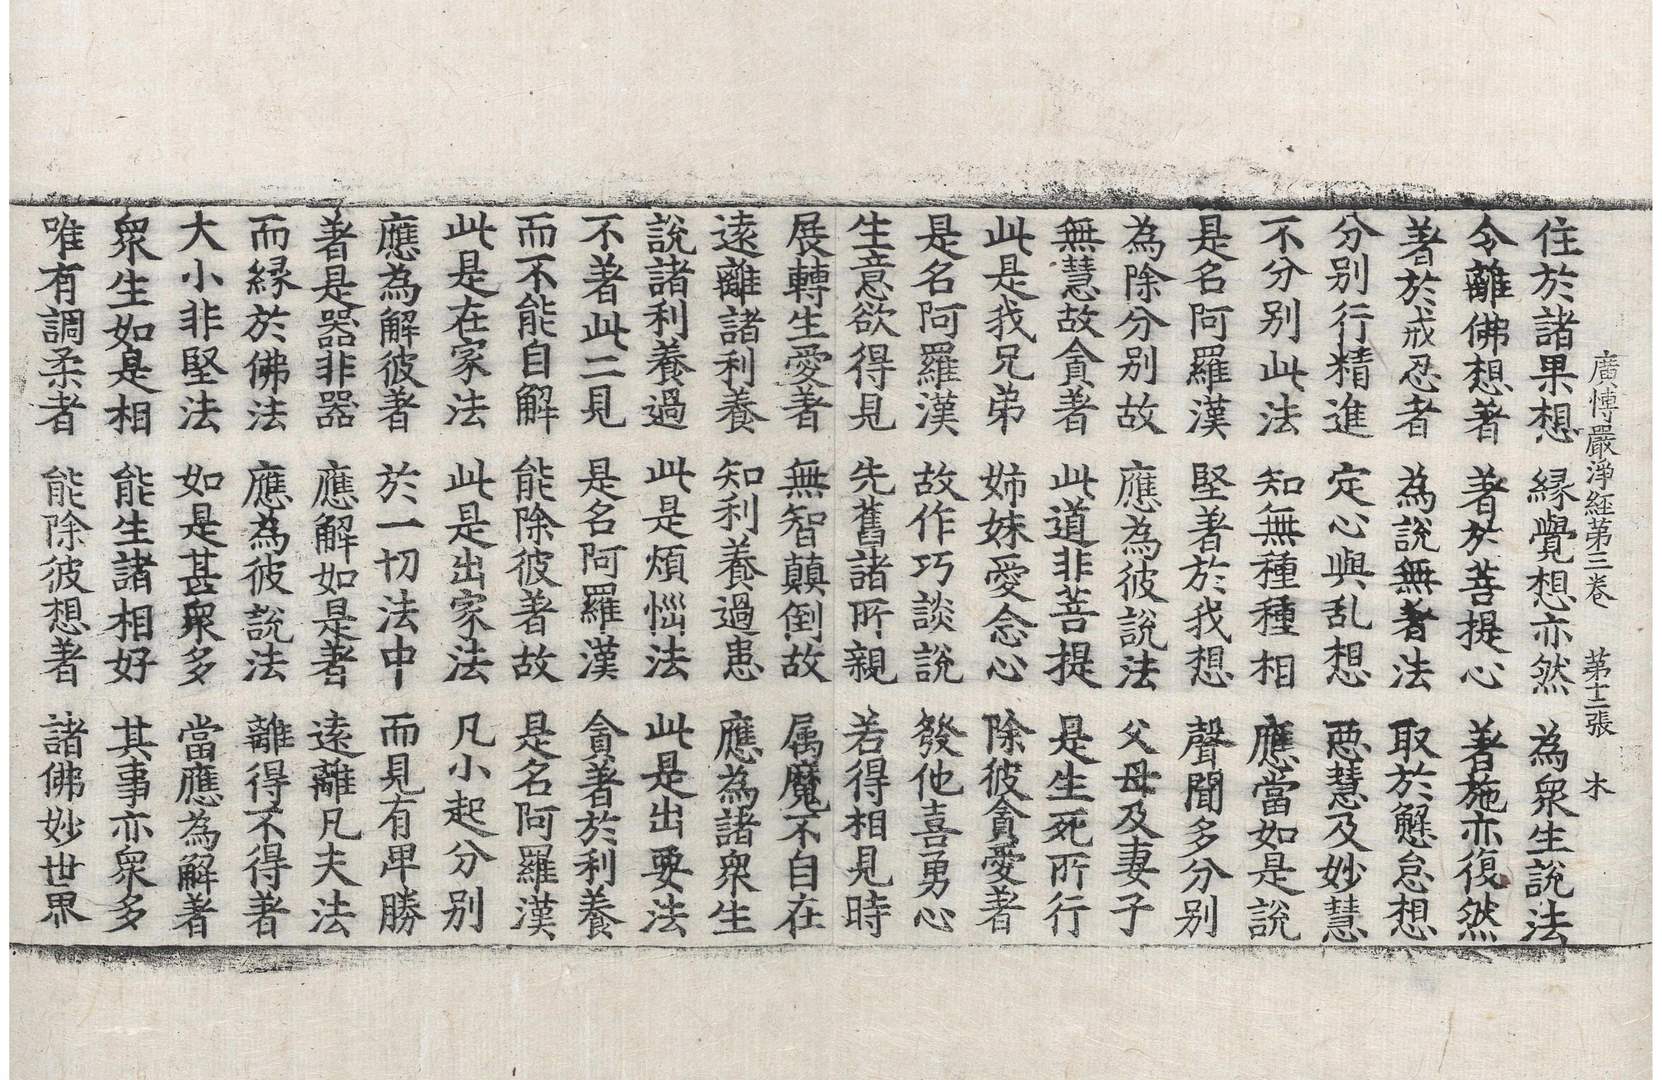 廣博嚴淨経第三卷 第十二張 木
住於諸果想 緣覺想亦然 為衆生說法
令離佛想著 著於菩提心 著施亦復然
著於戒忍者 為說無著法 取於懈怠想
分别行精進 定心與乱想 惡慧及妙慧
不分别此法 知無種種相 應當如是說
是名阿羅漢 堅著於我想 聲聞多分别
為除分别故 應為彼說法 父母及妻子
無慧故貪著 此道非菩提 是生死所行
此是我兄弟 姊妹愛念心 除彼貪愛著
是名阿羅漢 故作巧談說 發他喜勇心
生意欲得見 先舊諸所親 若得相見時
展轉生愛著 無智顛倒故 属魔不自在
逺離諸利養 知利養過患 應為諸衆生
說諸利養過 此是煩惱法 此是出要法
不著此二見 是名阿羅漢 貪著於利養
而不能自解 能除彼著故 是名阿羅漢
此是在家法 此是出家法 凡小起分别
應為解彼著 於一切法中 而見有卑勝
著是器非器 應解如是著 逺離凡夫法
而緣於佛法 應為彼說法 離得不得著
大小非堅法 如是甚衆多 當應為解著
衆生如是相 能生諸相好 其事亦衆多
唯有調柔者 能除彼想著 諸佛妙世界